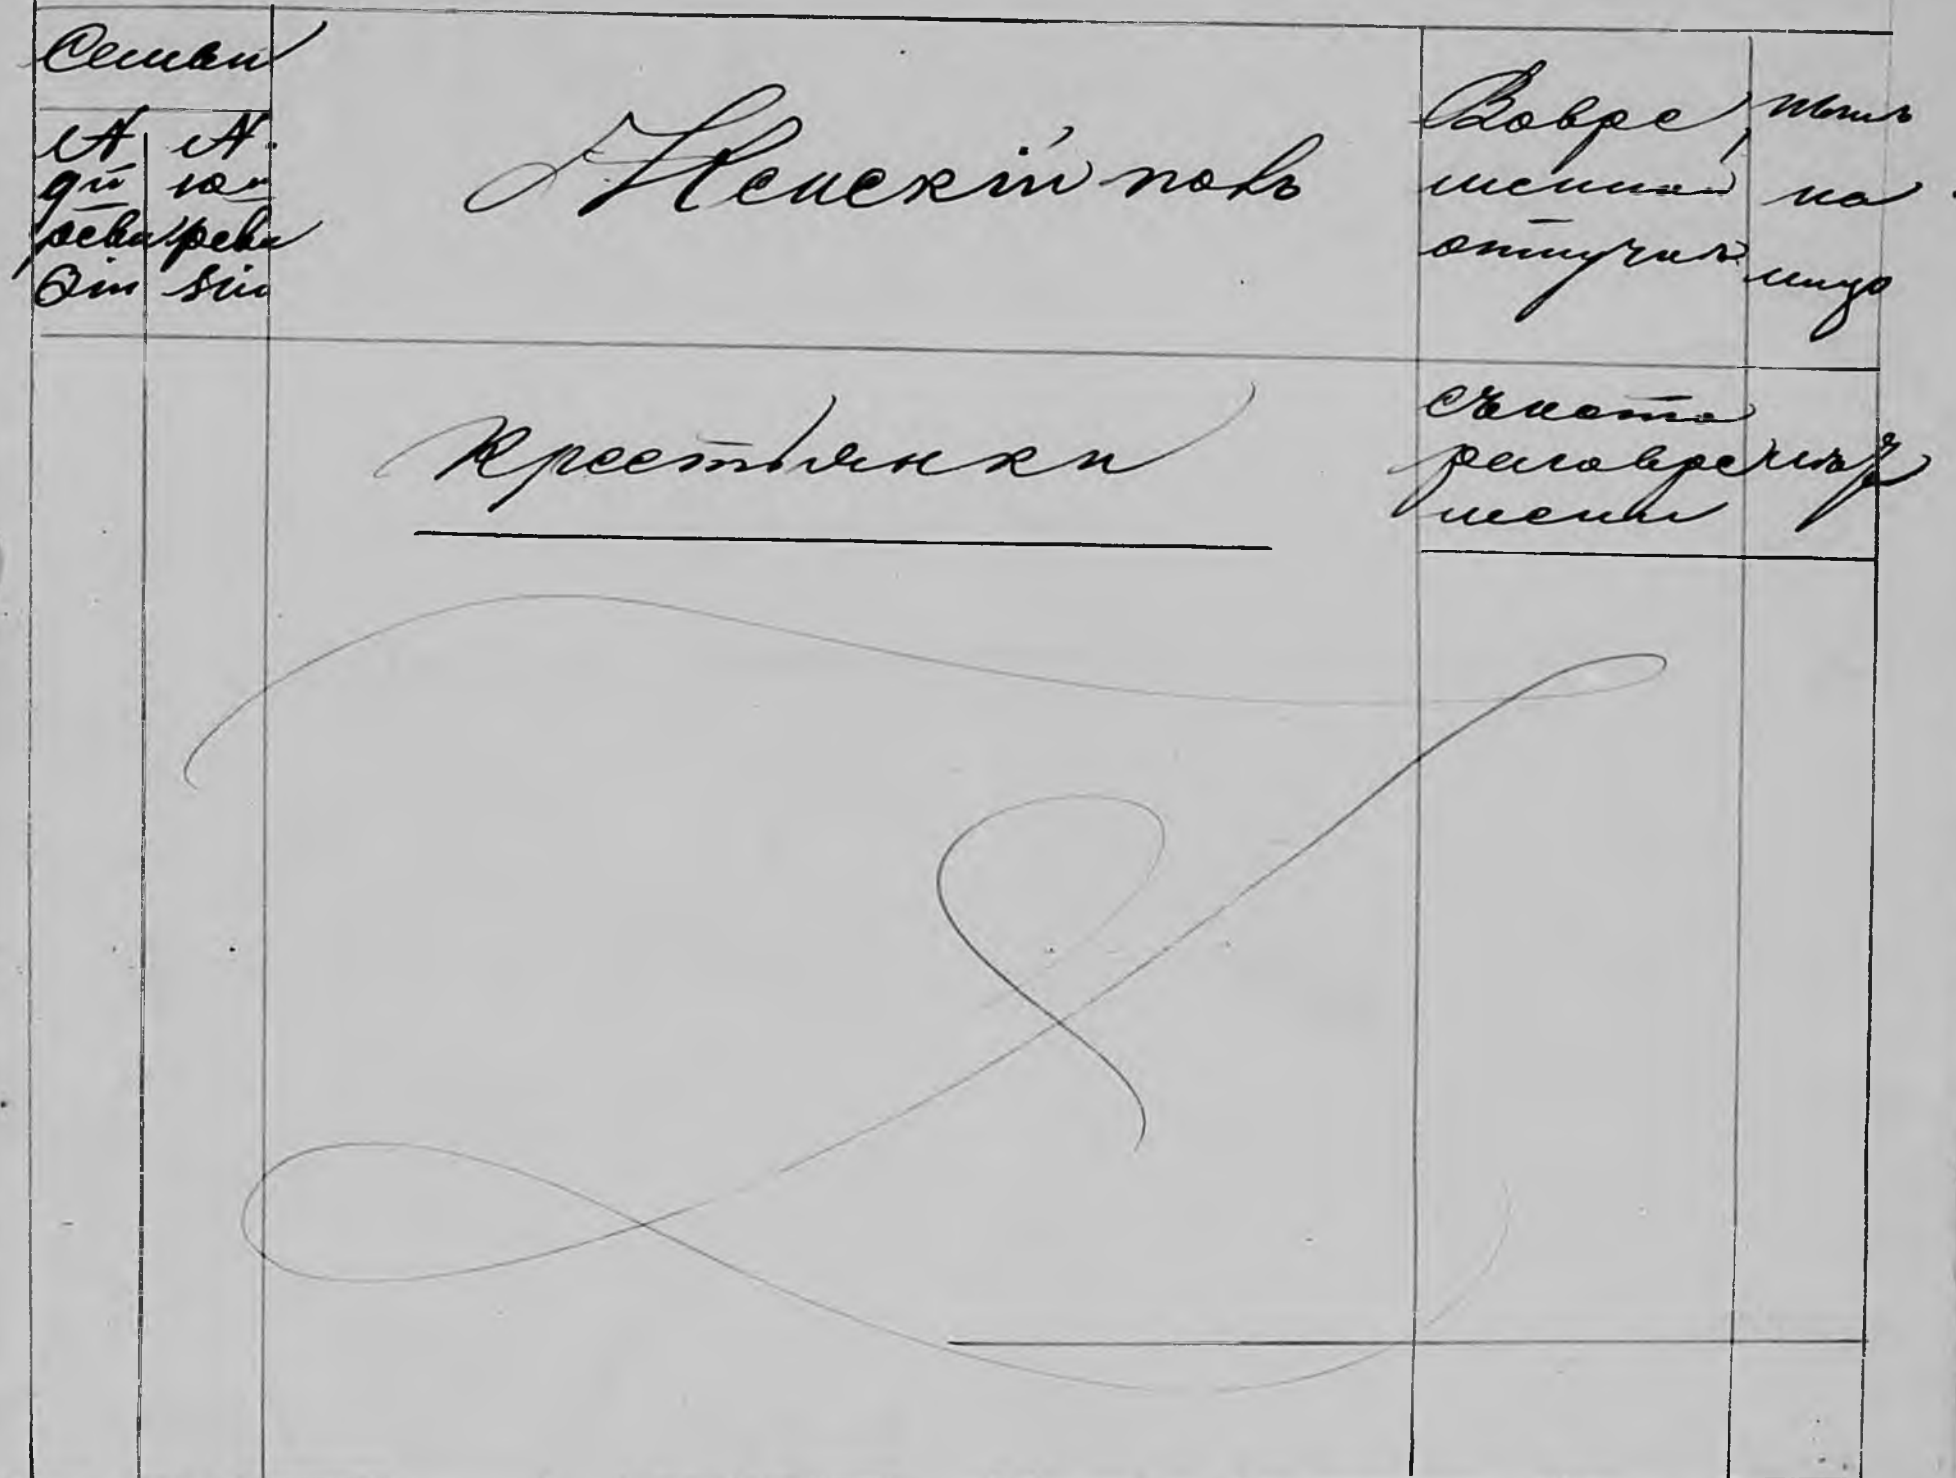 Семьи
№
№
ревизіи
ревизіи
Женскій полъ
Вовре
менной
отлучкѣ
нынѣ
на
лицо
Крестьянки
съ кото
раго вре
мени